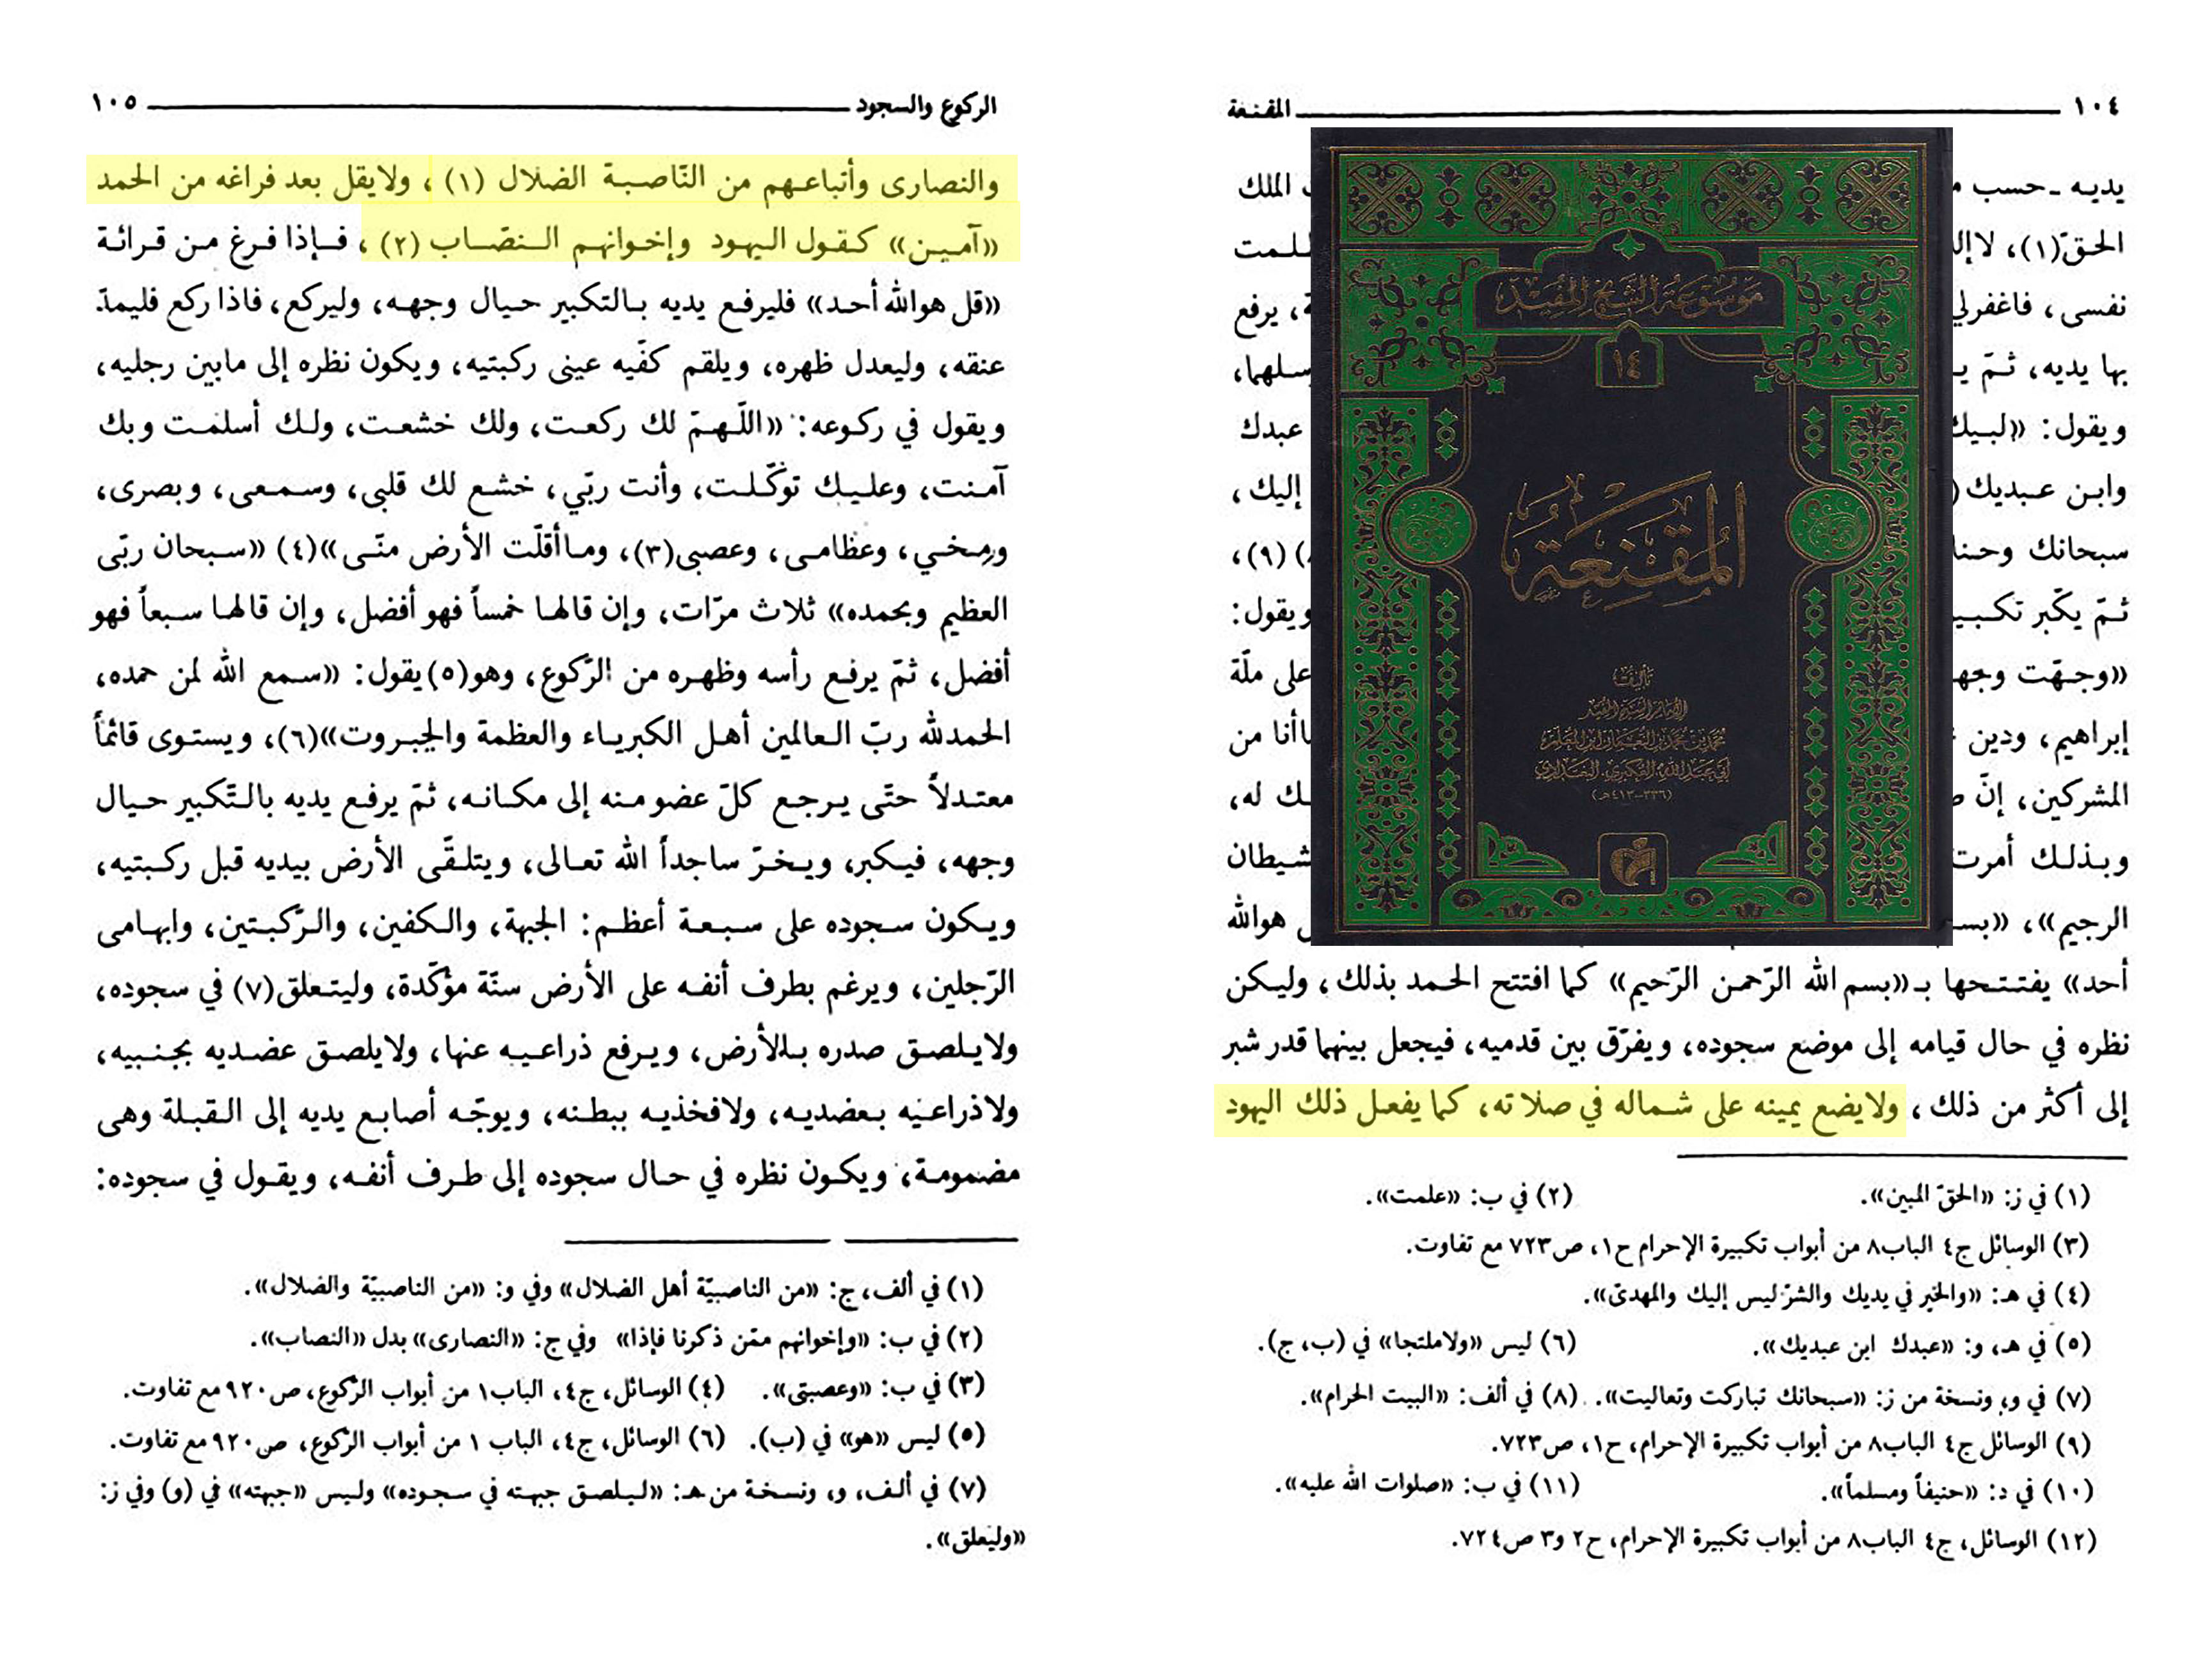 ١٠٤ المقنعة
يديه ـ حسب الملك
الحقّ(١)، لا إله ظلمت
نفسى، فاغفرلي يرفع
بها يديه، ثمّ
ويقول: «لبيك عبدك
وابن عبديك إليك،
سبحانك (٩)،
ثمّ يكبّر ويقول:
«وجهّت على ملّة
إبراهيم، ودين من
المشركين، إنّ له،
وبذلك أمرت
الرجيم»، هوالله
أحد» يفتتحها بـ«بسم الله الرّحمن الرّحيم» كما افتتح الحمد بذلك، وليكن
نظره في حال قيامه إلى موضع سجوده، ويفرّق بين قدميه، فيجعل بينهما قدر شبر
إلى أكثر من ذلك، ولايضع يمينه على شماله في صلاته، كما يفعل ذلك اليهود
(١) في ز: «الحقّ المبين». (٢) في ب: «علمت».
(٣) الوسائل ج٤ الباب٨ من أبواب تكبيرة الإحرام ح١، ص٧٢٣ مع تفاوت.
(٤) في هـ: «والخير في يديك والشرّ ليس إليك والمهدىّ».
(٥) في هـ، و: «عبدك ابن عبديك». (٦) ليس «ولاملتجا» في (ب، ج).
(٧) في و، ونسخة من ز: «سبحانك تباركت وتعاليت». (٨) في ألف: «البيت الحرام».
(٩) الوسائل ج٤ الباب٨ من أبواب تكبيرة الإحرام، ح١، ص٧٢٣.
(١٠) في د: «حنيفاً ومسلماً». (١١) في ب: «صلوات الله عليه».
(١٢) الوسائل، ج٤ الباب٨ من أبواب تكبيرة الإحرام، ح٢ و٣ ص٧٢٤.
موسوعة الشيخ المفيد
١٤
المقنعة
تأليف
الإمام الشيخ المفيد
محمد بن محمد بن النعمان ابن المعلم
أبي عبدالله، العكبري، البغدادي
(٣٣٦-٤١٣هـ)
الركوع والسجود ١٠٥
والنصارى وأتباعهم من النّاصبة الضلال (١)، ولايقل بعد فراغه من الحمد
«آمين» كقول اليهود وإخوانهم النصّاب (٢)، فإذا فرغ من قرائة
«قل هوالله أحد» فليرفع يديه بالتكبير حيال وجهه، وليركع، فاذا ركع فليمدّ
عنقه، وليعدل ظهره، ويلقم كفّيه عينى ركبتيه، ويكون نظره إلى مابين رجليه،
ويقول في ركوعه: «اللّهمّ لك ركعت، ولك خشعت، ولك أسلمت وبك
آمنت، وعليك توكّلت، وأنت ربّي، خشع لك قلبى، وسمعى، وبصرى،
ومخي، وعظامى، وعصبى(٣)، وماأقلّت الأرض منّى»(٤) «سبحان ربّى
العظيم وبحمده» ثلاث مرّات، وإن قالها خمساً فهو أفضل، وإن قالها سبعاً فهو
أفضل، ثمّ يرفع رأسه وظهره من الرّكوع، وهو(٥) يقول: «سمع الله لمن حمده،
الحمدلله ربّ العالمين أهل الكبرياء والعظمة والجبروت»(٦)، ويستوى قائماً
معتدلاً حتّى يرجع كلّ عضو منه إلى مكانه، ثمّ يرفع يديه بالتّكبير حيال
وجهه، فيكبر، ويخرّ ساجداً الله تعالى، ويتلقّى الأرض بيديه قبل ركبتيه،
ويكون سجوده على سبعة أعظم: الجبهة، والكفين، والرّكبتين، وابهامى
الرّجلين، ويرغم بطرف أنفه على الأرض سنّة مؤكّدة، وليتعلق(٧) في سجوده،
ولايلصق صدره بالأرض، ويرفع ذراعيه عنها، ولايلصق عضديه بجنبيه،
ولاذراعيه بعضديه، ولافخذيه ببطنه، ويوجّه أصابع يديه إلى القبلة وهى
مضمومة، ويكون نظره في حال سجوده إلى طرف أنفه، ويقول في سجوده:
(١) في ألف، ج: «من الناصبيّة أهل الضلال» وفي و: «من الناصبيّة والضلال».
(٢) في ب: «وإخوانهم ممّن ذكرنا فإذا» وفي ج: «النصارى» بدل «النصاب».
(٣) في ب: «وعصبتى». (٤) الوسائل، ج٤، الباب١ من أبواب الرّكوع، ص٩٢٠ مع تفاوت.
(٥) ليس «هو» في (ب). (٦) الوسائل، ج٤، الباب ١ من أبواب الرّكوع، ص٩٢٠ مع تفاوت.
(٧) في ألف، و، ونسخة من هـ: «ليلصق جبهته في سجوده» وليس «جبهته» في (و) وفي ز:
«وليعلق».